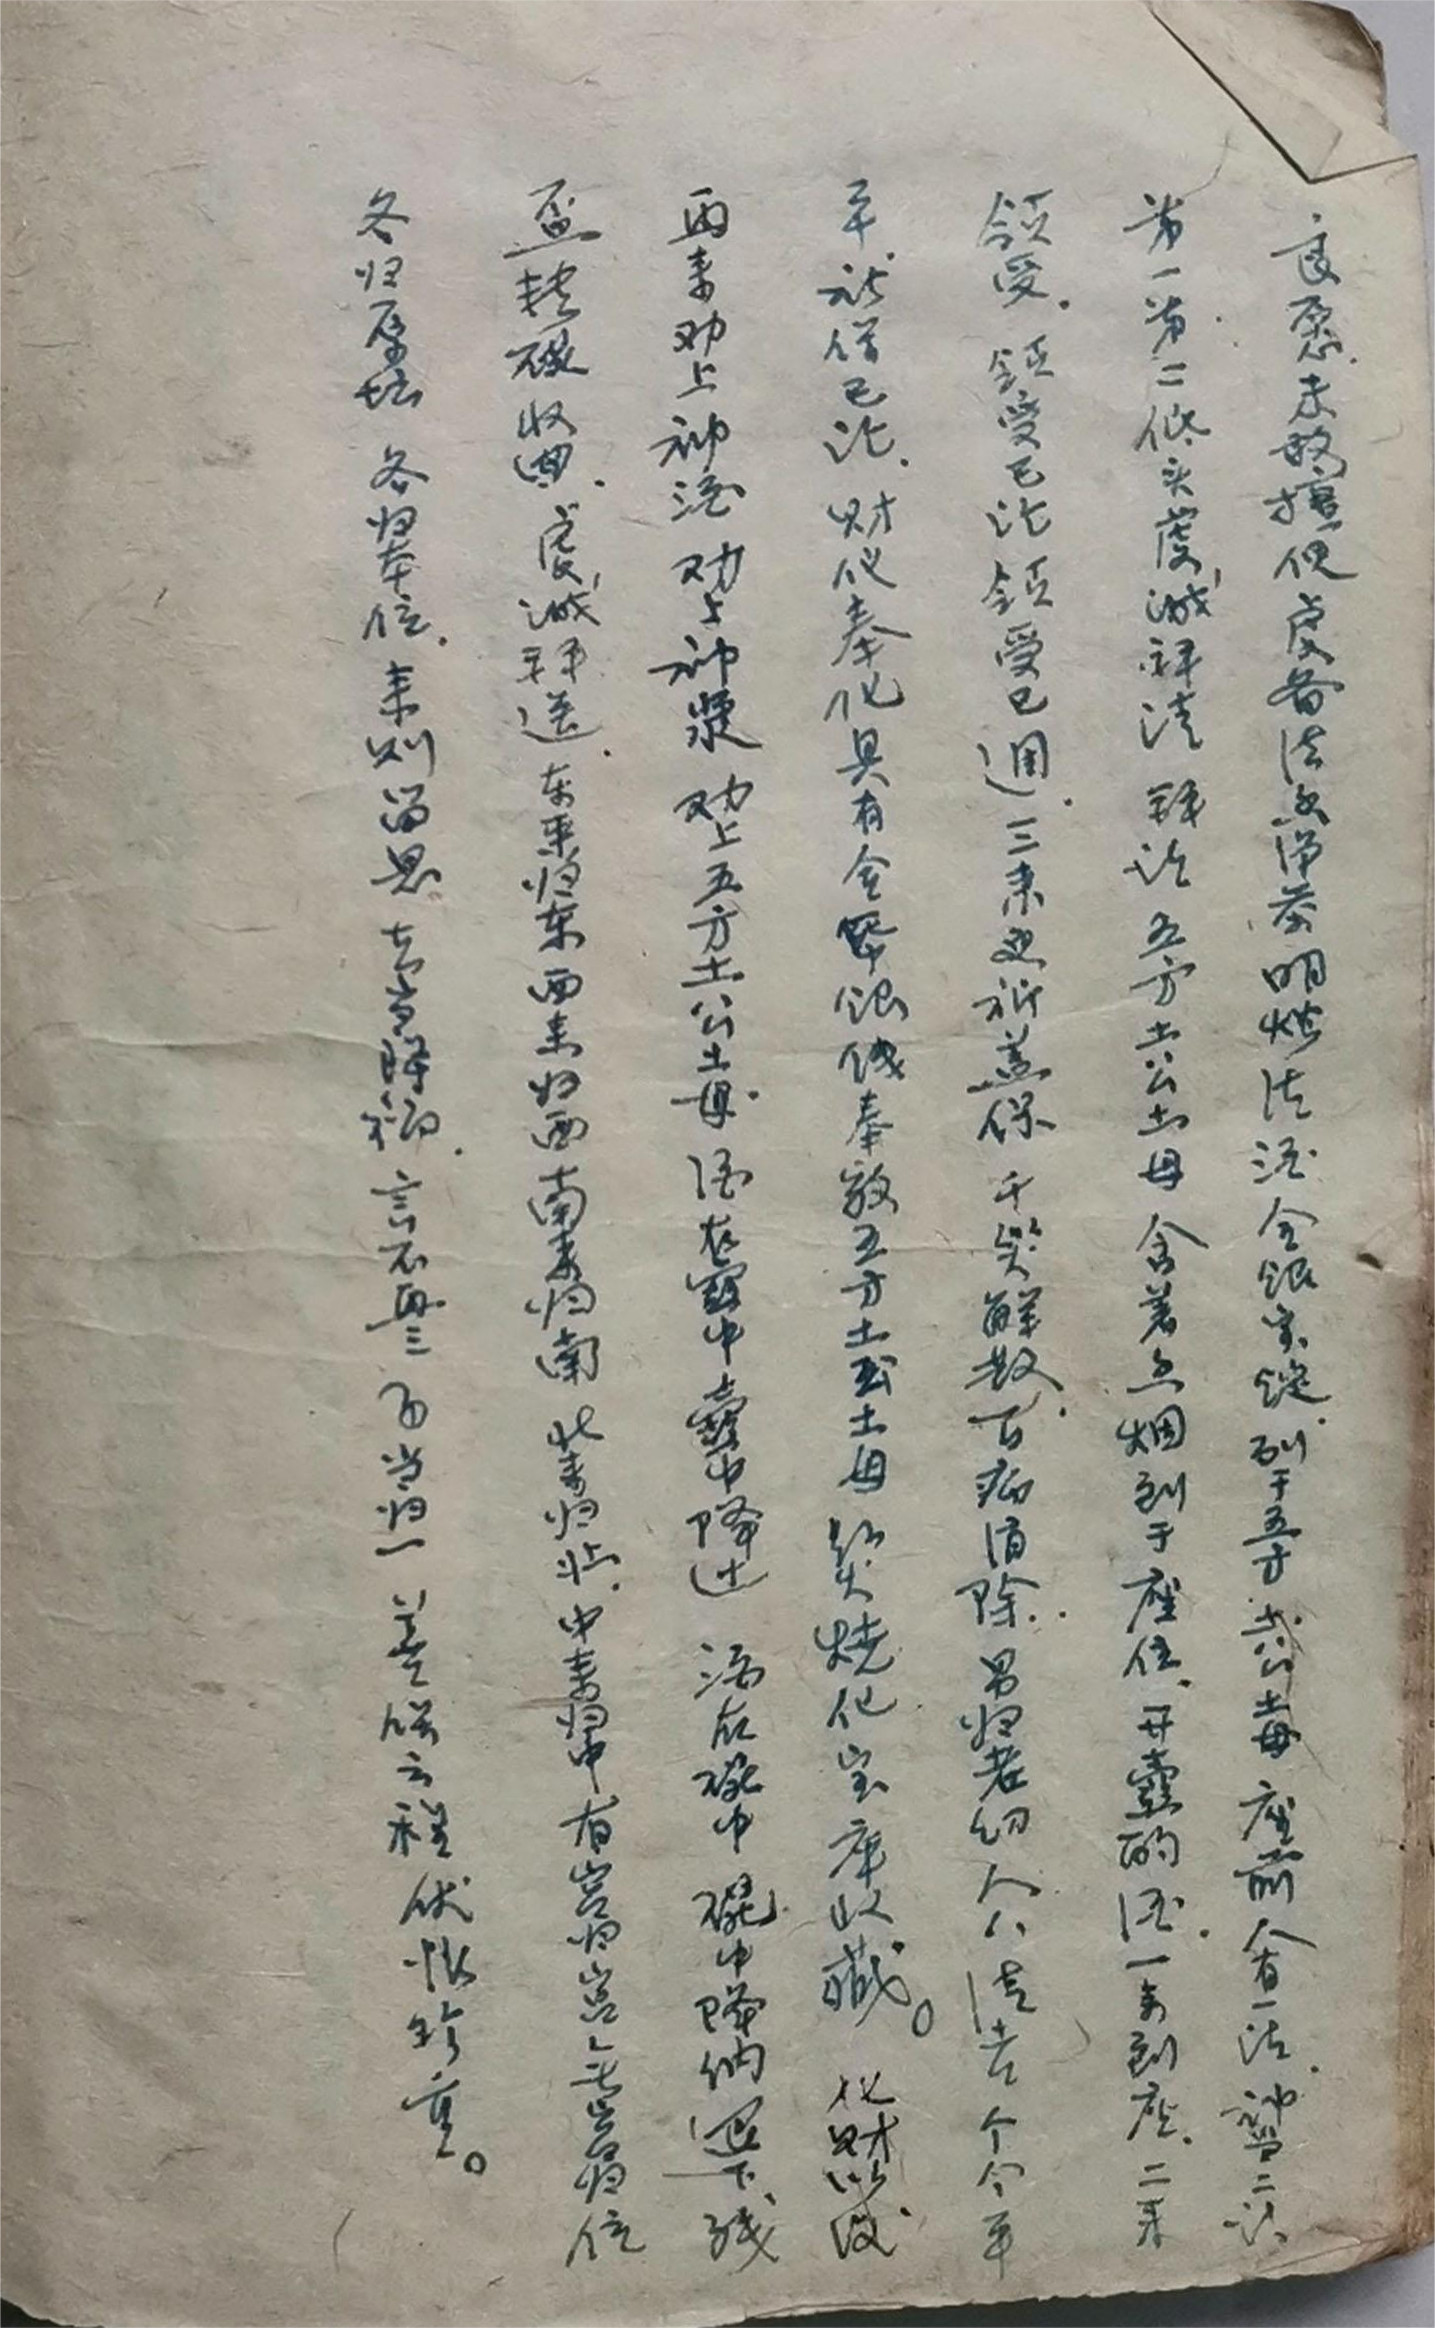 良愿未敢擅便虔备法水净茶明灯法酒金银宋锭列于五方土公土母座前人有一请神当二请
第一第二低头虔诚拜请拜请五方土公土母含着香烟到于座位开壶酌酒一来到座二来
领受领受已讫领受已週三来更祈盖保千灾解散百病消除男归老幼人人清吉个个平
平祈借已讫财仪奉化具有金帛银钱奉敬五方土公土母以火烧化宝库收藏。化财以后
再来劝上神酒劝上神浆劝上五方土公土母酒在壶中壶中降过酒在碗中碗中降纳退下残
盃转破收回虔诚拜送东来归东西来归西南来归南北来归北中来归中有宫归宫无宫归位
各归原坛各归本位来则留恩去当降福言不再三了当归一盖候云程伏惟珍重。